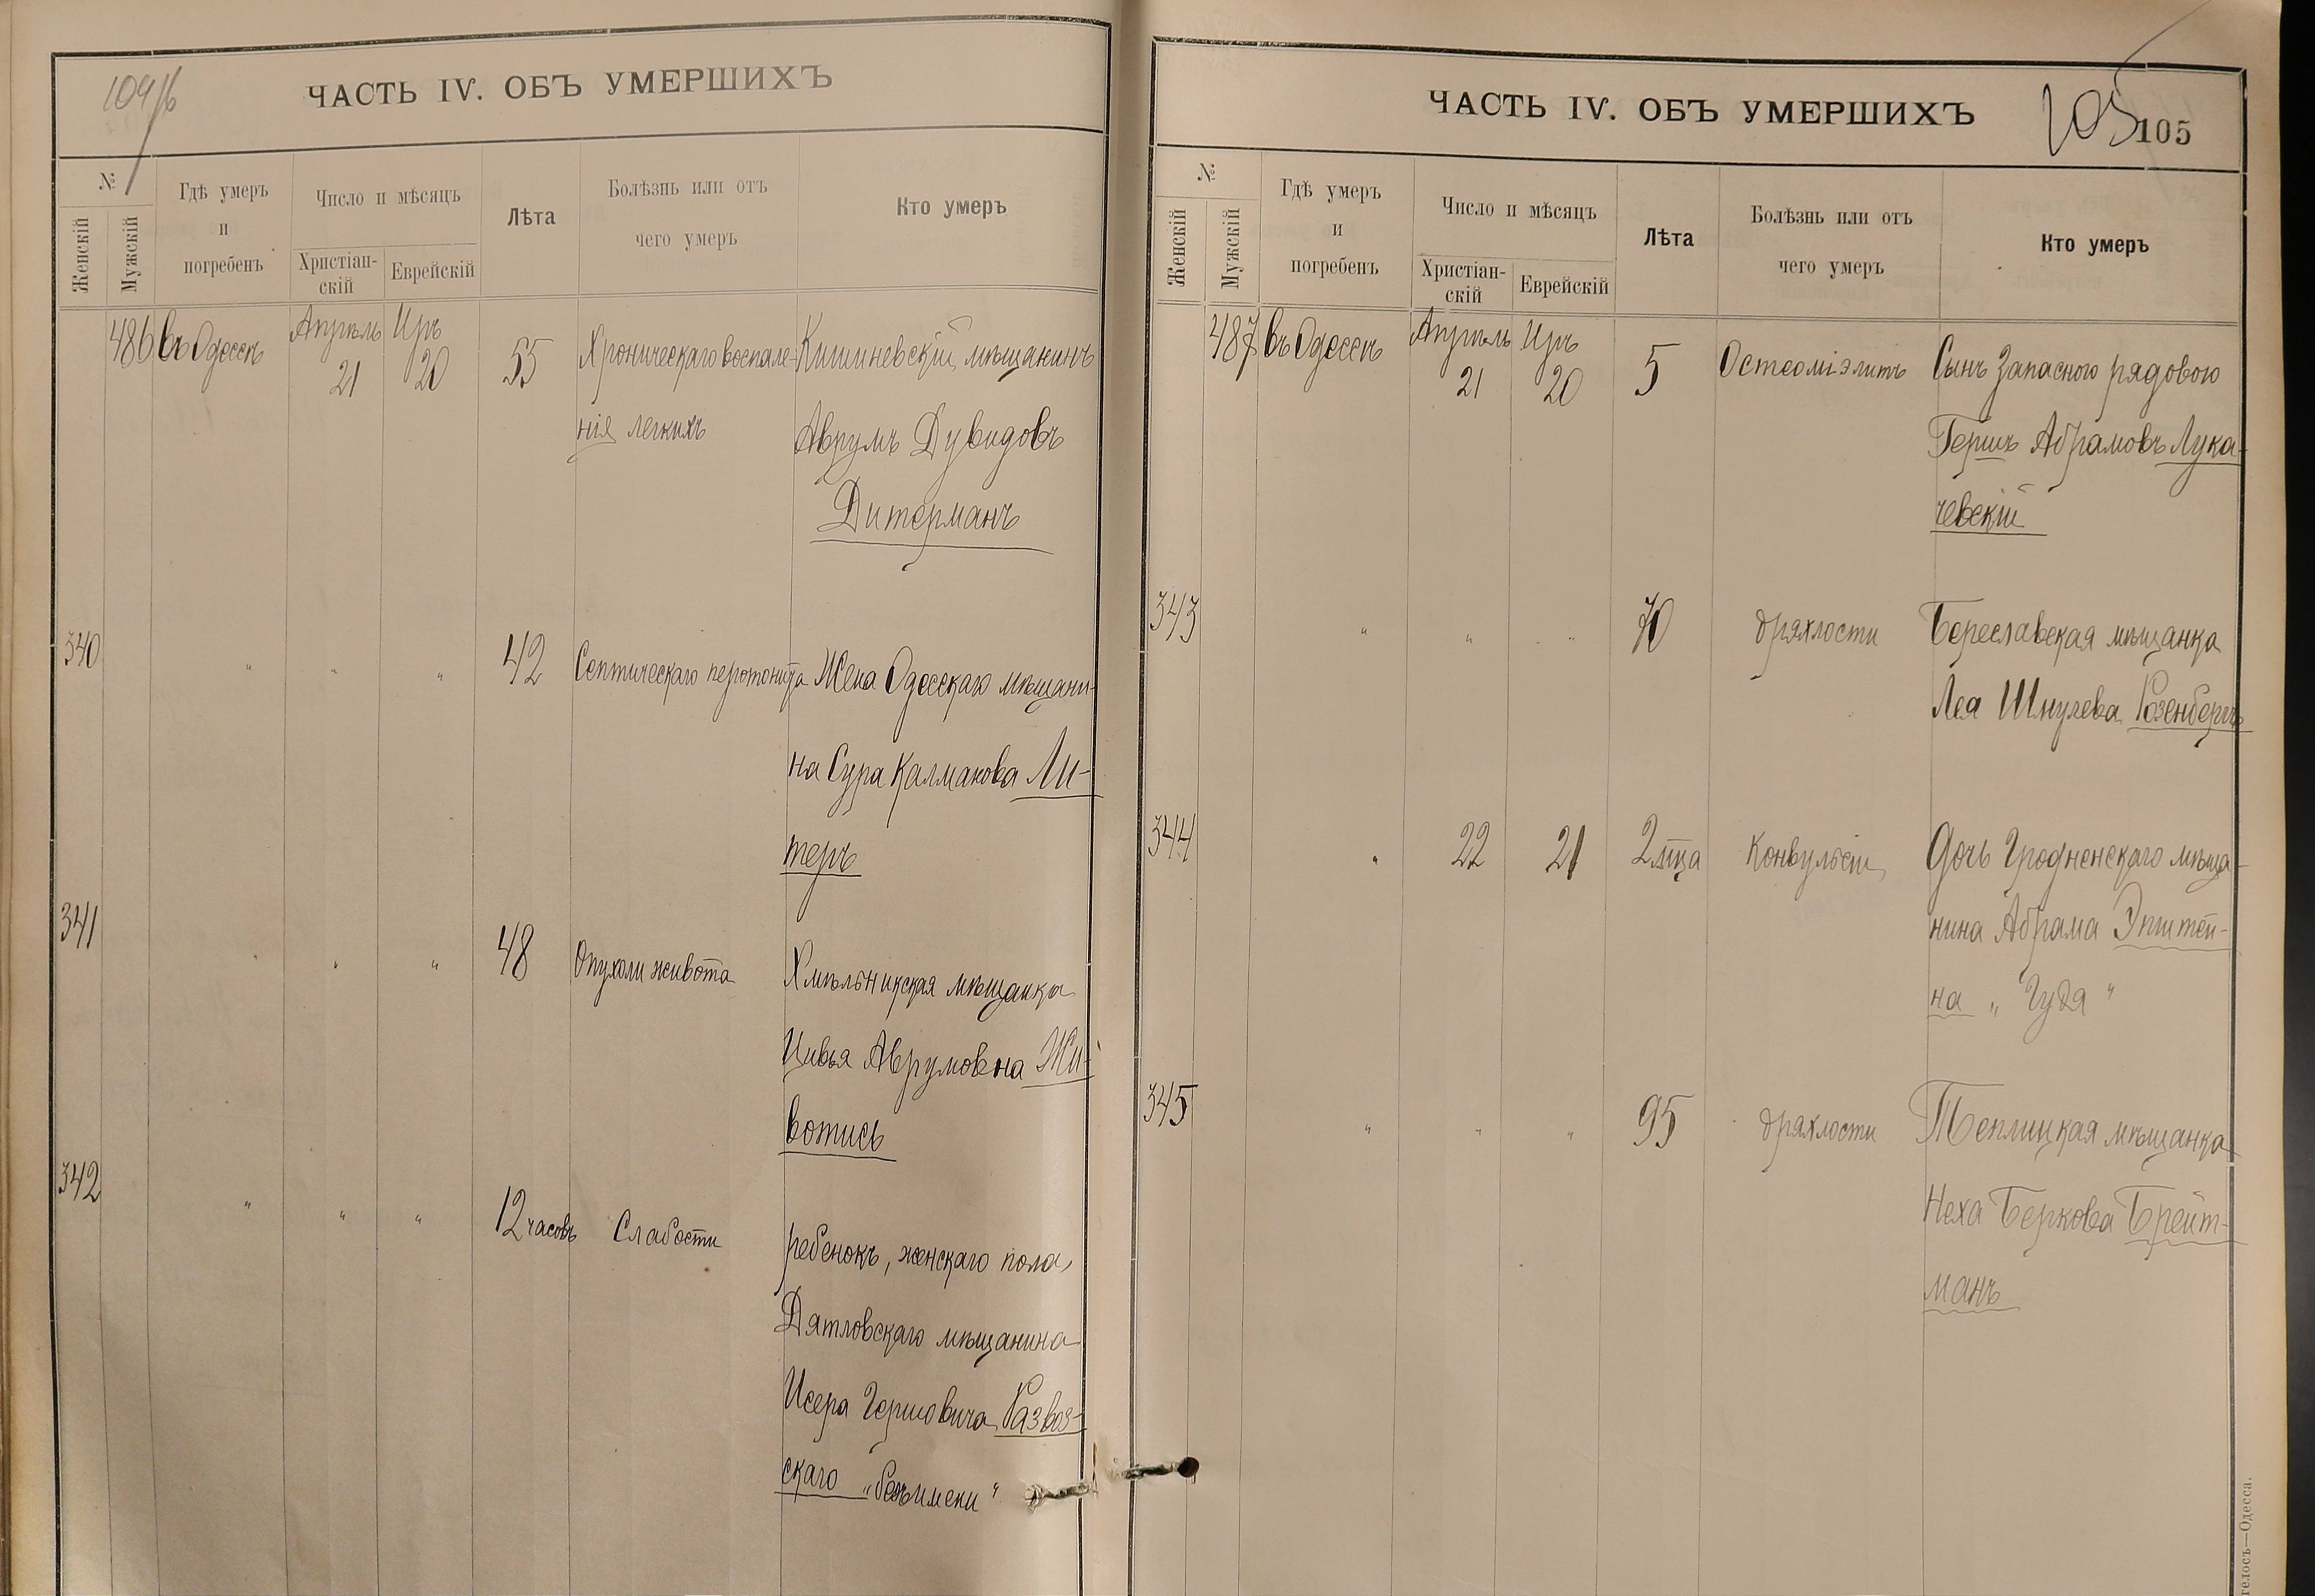 104/б
ЧАСТЬ IV. ОБЪ УМЕРШИХЪ
№
Женскій
Мужскій
Гдѣ умеръ
и
погребенъ
Число и мѣсяцъ
Христіан-
скій
Еврейскій
Лѣта
Болѣзнь или отъ
чего умеръ
Кто умеръ
486 въ Одессѣ Апрѣль 21 Иръ 20 55 Хроническаго воспале- Кишиневскій мѣщанинъ
нія легкихъ Аврумъ Дувидовъ
Дитерманъ
340 " " " 42 Септическаго перитонита Жена Одесскаго мѣщани-
на Сура Калманова Ли-
теръ
341 " " " 48 Опухоли живота Хмѣльникская мѣщанка
Цивья Аврумовна Жи-
вотись
342 " " " 12 часовъ Слабости ребенокъ, женскаго пола,
Дятловскаго мѣщанина
Исера Гершовича Развоз-
скаго „безъимени"
ЧАСТЬ IV. ОБЪ УМЕРШИХЪ
105
105
№
Женскій
Мужскій
Гдѣ умеръ
и
погребенъ
Число и мѣсяцъ
Христіан-
скій
Еврейскій
Лѣта
Болѣзнь или отъ
чего умеръ
Кто умеръ
487 въ Одессѣ Апрѣль 21 Иръ 20 5 Остеоміэлитъ Сынъ Запасного рядового
Гершъ Абрамовъ Лука-
чевскій
343 " " " 70 дряхлости Береславская мѣщанка
Леа Шнулева Розенбергъ
344 " 22 21 2 м-ца Конвульсіи Дочь Гродненскаго мѣща-
нина Абрама Эпштей-
на „Гудя"
345 " " " 95 дряхлости Теплицкая мѣщанка
Неха Беркова Брейт-
манъ
гелосъ—Одесса.